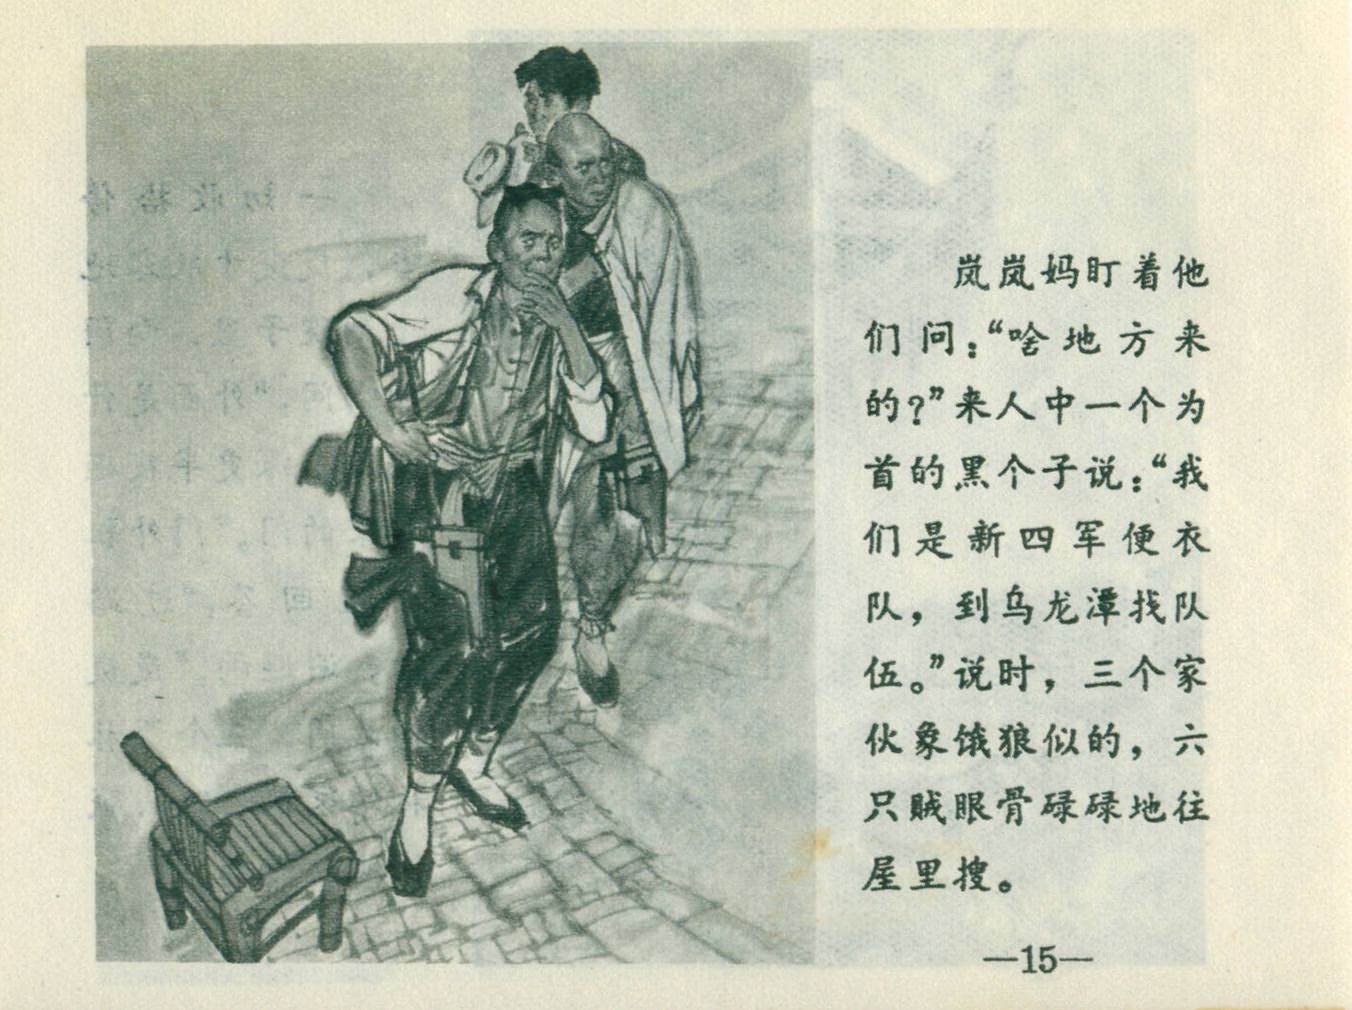 岚岚妈盯着他
们问：“啥地方来
的？”来人中一个为
首的黑个子说：“我
们是新四军便衣
队，到乌龙潭找队
伍。”说时，三个家
伙象饿狼似的，六
只贼眼骨碌碌地往
屋里搜。
—15—